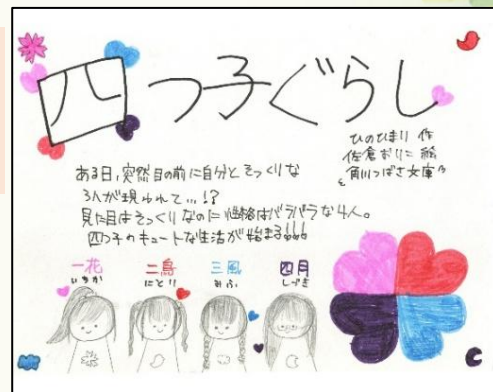 四つ子ぐらし
ひのひまり 作
佐倉おりこ 絵
角川つばさ文庫
ある日、突然目の前に自分とそっくりな
3人が現われて…!?
見た目はそっくりなのに性格はバラバラな4人。
四つ子のキュートな生活が始まる!!!
一花 二鳥 三風 四月
いちか にとり みふ しづき